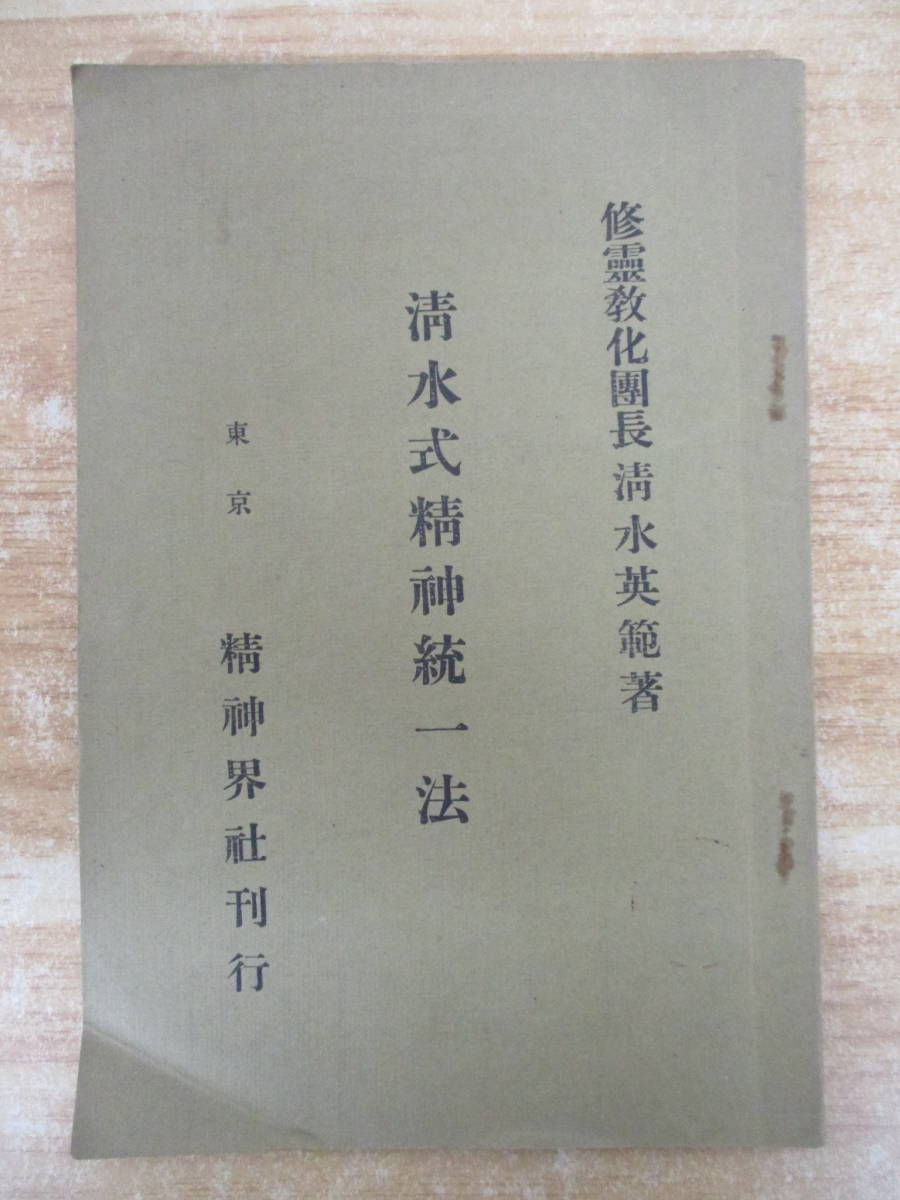 修靈教化團長清水英範著
淸水式精神統一法
東京 精神界社刊行